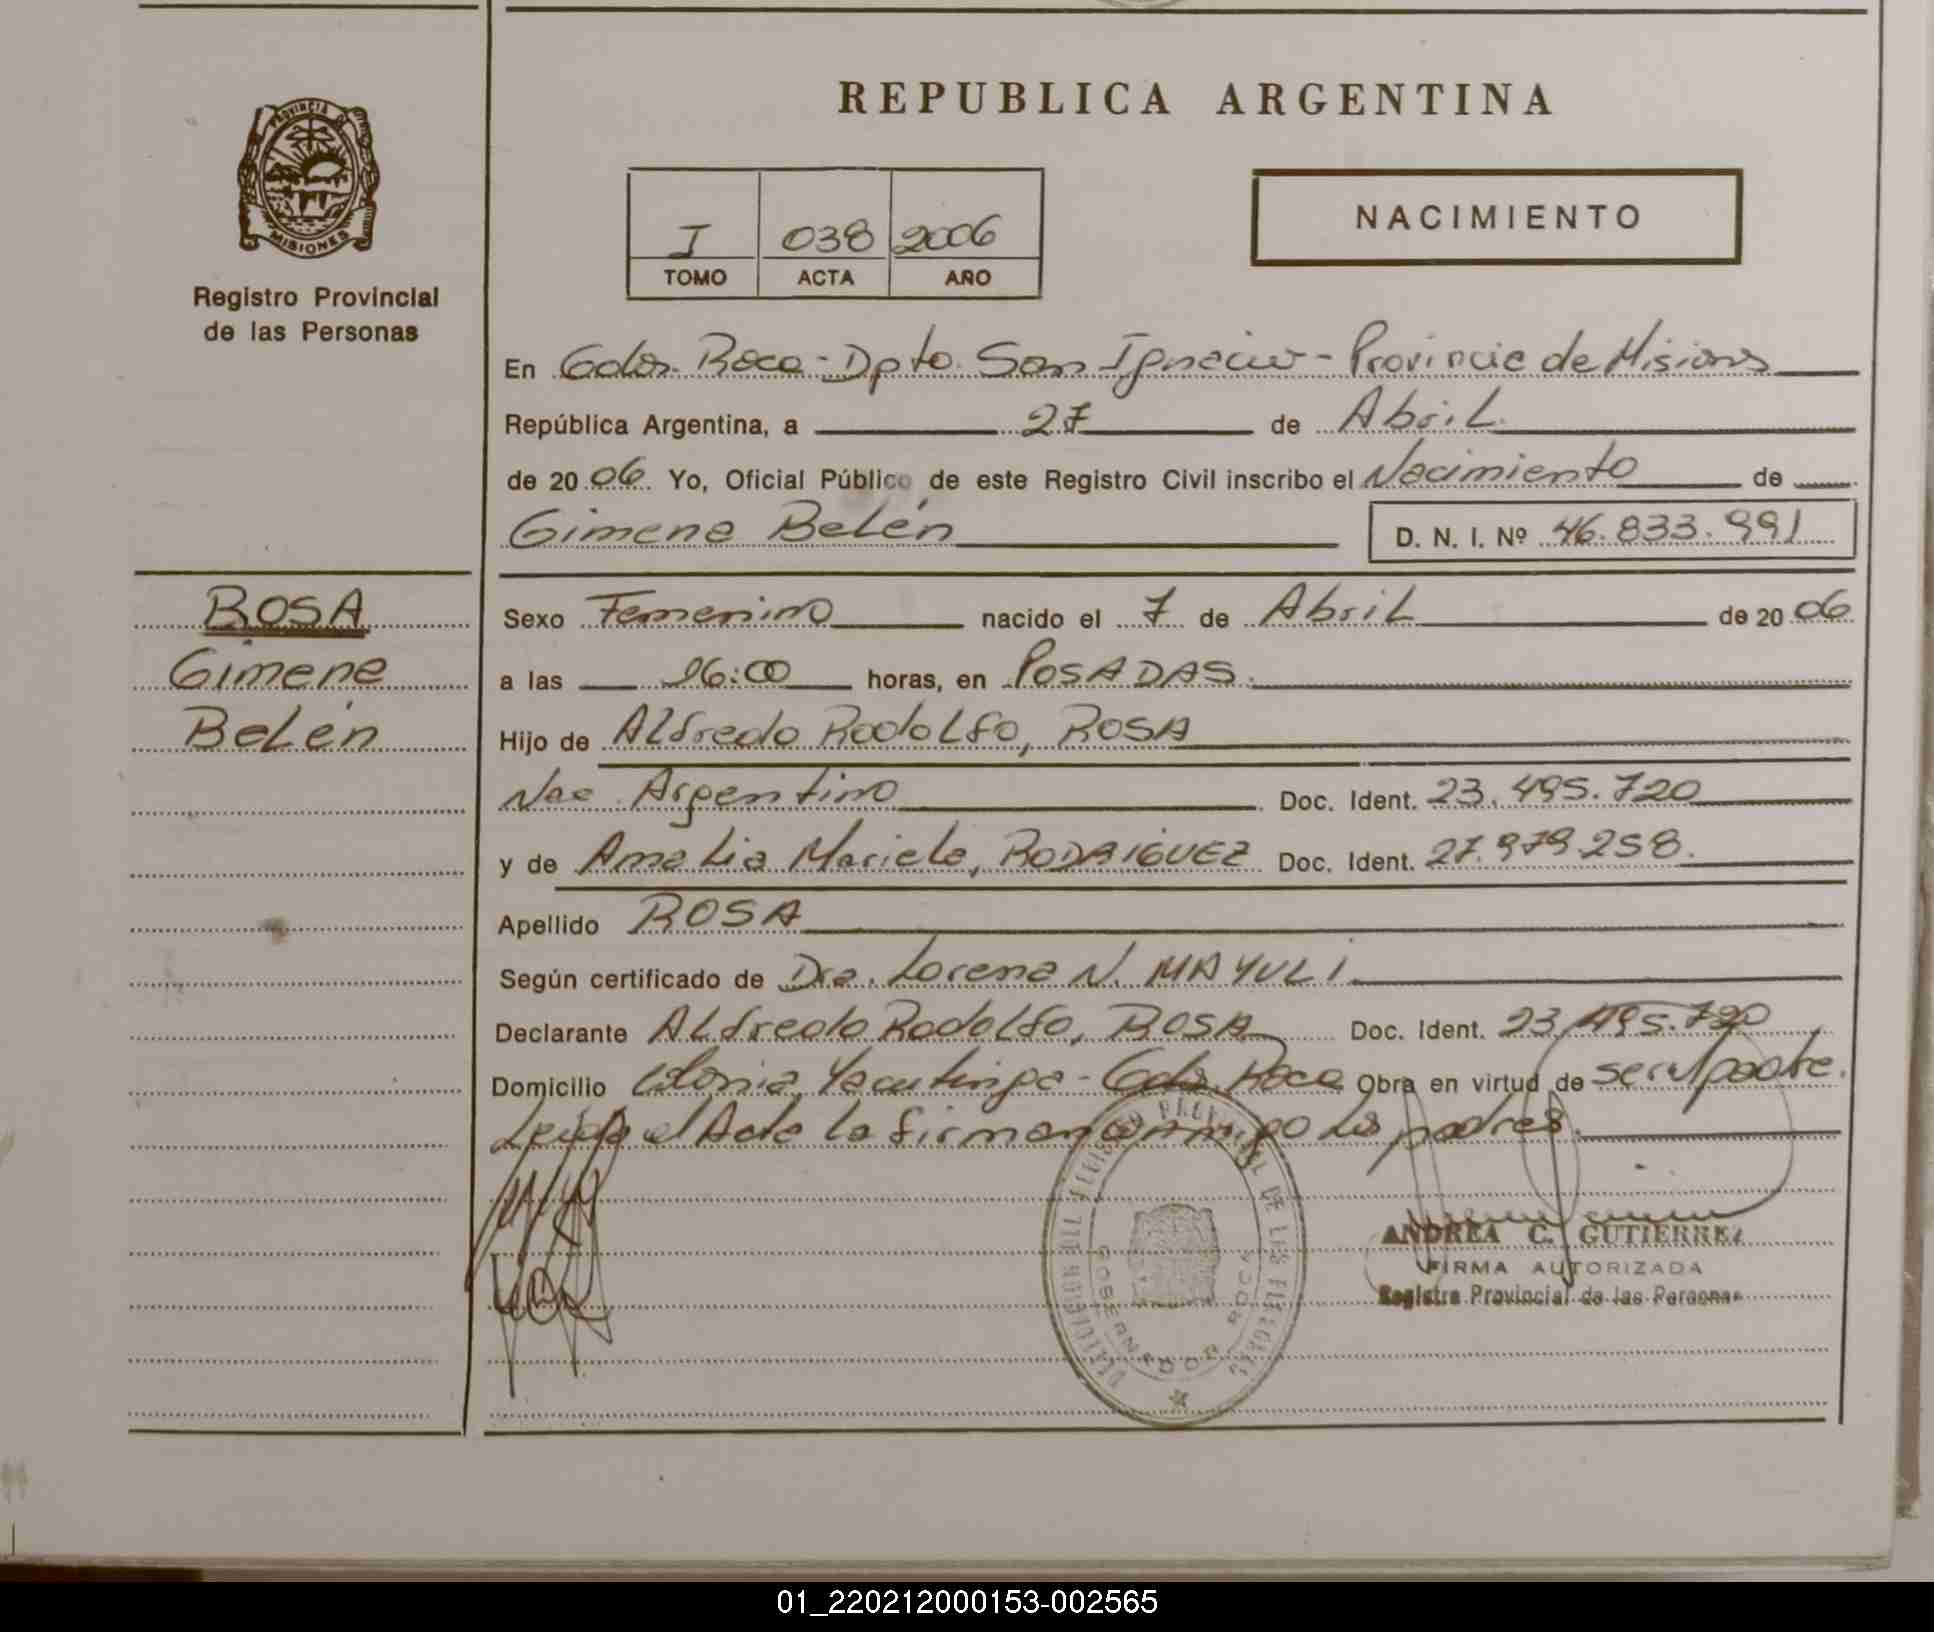 REPUBLICA ARGENTINA
PROVINCIA DE
MISIONES
Registro Provincial
de las Personas
I 038 2006
TOMO ACTA AÑO
NACIMIENTO
En Gdor. Roca - Dpto. San Ignacio - Provincia de Misiones
República Argentina, a 27 de Abril
de 2006 Yo, Oficial Público de este Registro Civil inscribo el Nacimiento de
Gimena Belén D. N. I. Nº 46.833.991
ROSA
Gimena
Belén
Sexo Femenino nacido el 7 de Abril de 2006
a las 16:00 horas, en POSADAS.
Hijo de Alfredo Rodolfo, ROSA
Nac. Argentino Doc. Ident. 23.495.720
y de Amalia Mariela, RODRIGUEZ Doc. Ident. 27.979.258.
Apellido ROSA
Según certificado de Dra. Lorena N. MAYULI
Declarante Alfredo Rodolfo, ROSA Doc. Ident. 23.495.720
Domicilio Colonia Yacutinga - Gdor. Roca Obra en virtud de ser el padre.
Leida el Acta la firman conmigo los padres.
PROVINCIAL DE LAS PERSONAS
GOBERNADOR ROCA
ANDREA C. GUTIERREZ
FIRMA AUTORIZADA
Registro Provincial de las Personas
01_220212000153-002565